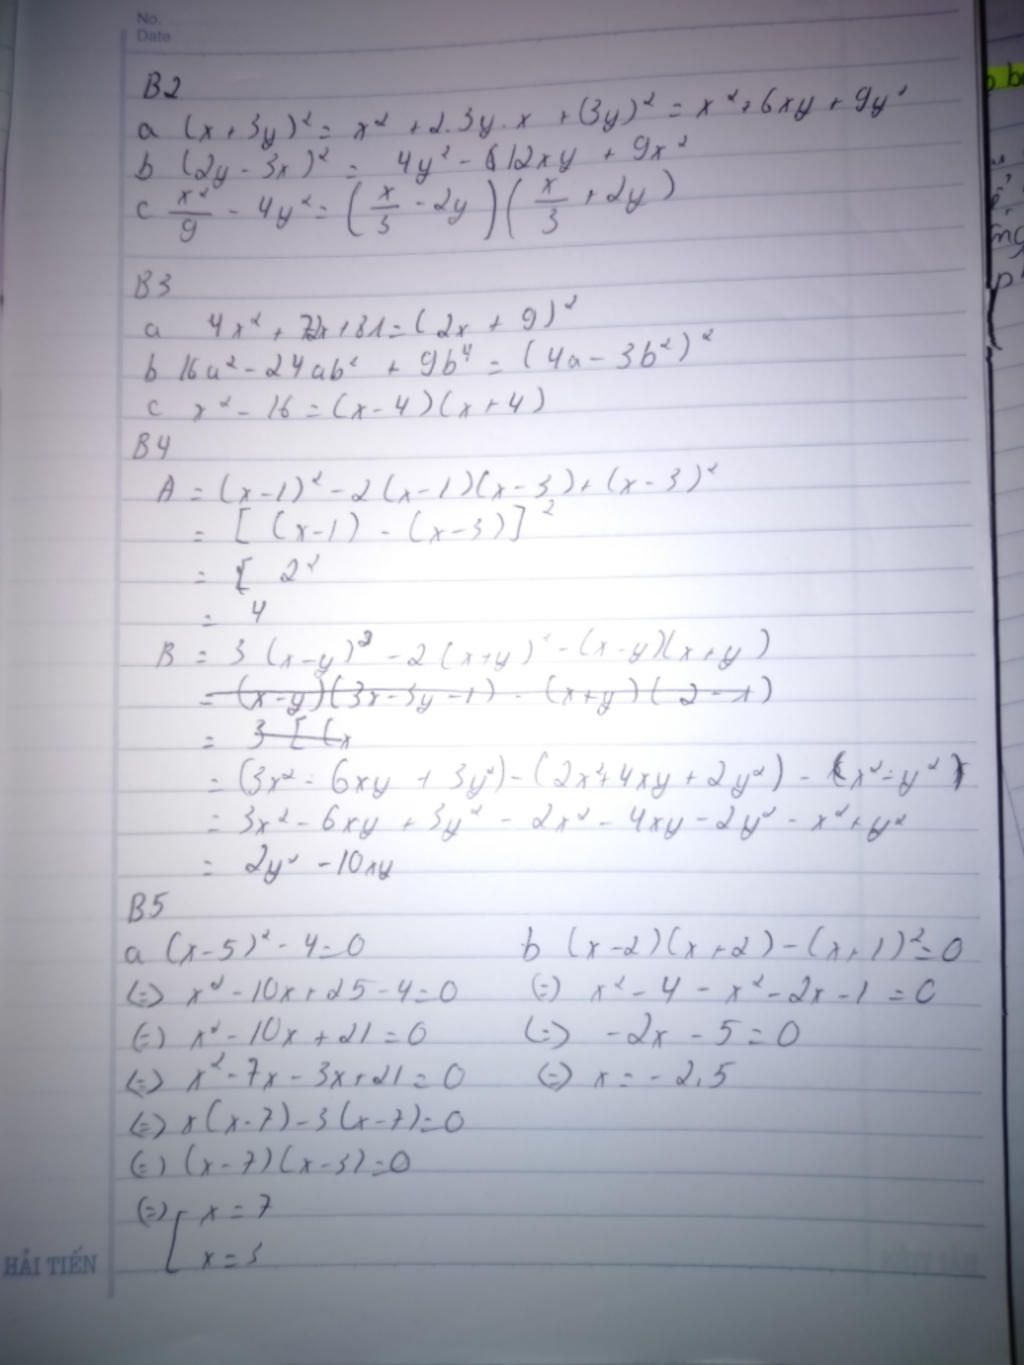 No.
Date
B2
a (x + 3y)² = x² + 2.3y.x + (3y)² = x² + 6xy + 9y²
b (2y - 3x)² = 4y² - 12xy + 9x²
c x²/9 - 4y² = (x/3 - 2y)(x/3 + 2y)
B3
a 4x² + 72x + 81 = (2x + 9)²
b 16a² - 24ab² + 9b⁴ = (4a - 3b²)²
c x² - 16 = (x - 4)(x + 4)
B4
A = (x-1)² - 2(x-1)(x-3) + (x-3)²
= [(x-1) - (x-3)]²
= [ 2²
= 4
B = 3(x-y)² - 2(x+y)² - (x-y)(x+y)
= (x-y)(3x-3y-1) - (x+y)(2-1)
= 3[(x
= (3x² - 6xy + 3y²) - (2x² + 4xy + 2y²) - (x² - y²)
= 3x² - 6xy + 3y² - 2x² - 4xy - 2y² - x² + y²
= 2y² - 10xy
B5
a (x-5)² - 4 = 0
(=) x² - 10x + 25 - 4 = 0
(=) x² - 10x + 21 = 0
(=) x² - 7x - 3x + 21 = 0
(=) x(x-7) - 3(x-7) = 0
(=) (x-7)(x-3) = 0
(=) [ x = 7
x = 3
b (x-2)(x+2) - (x+1)² = 0
(=) x² - 4 - x² - 2x - 1 = 0
(=) -2x - 5 = 0
(=) x = -2,5
HẢI TIẾN